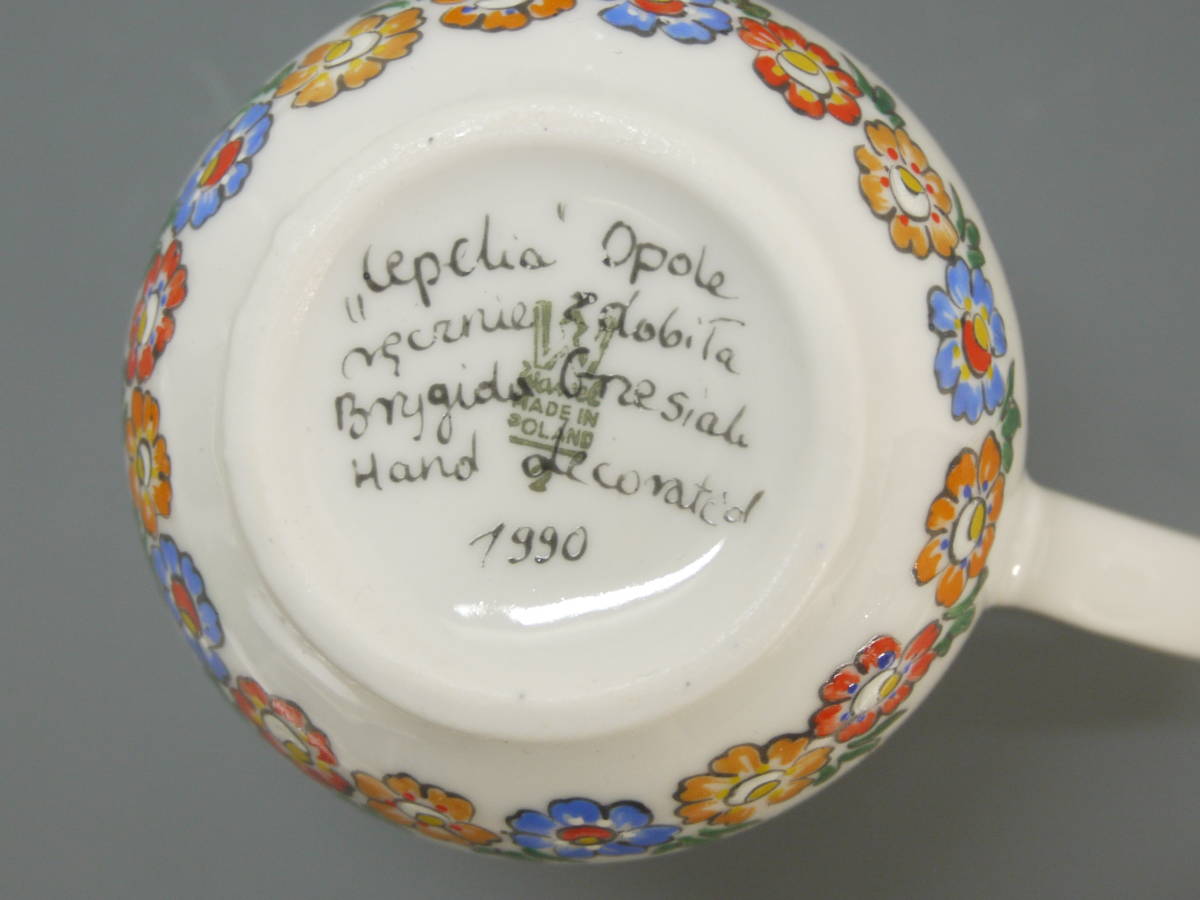 „Cepelia" Opole
ręcznie zdobiła
Brygida Grzesiak
Hand decorated
1990
MADE IN
POLAND